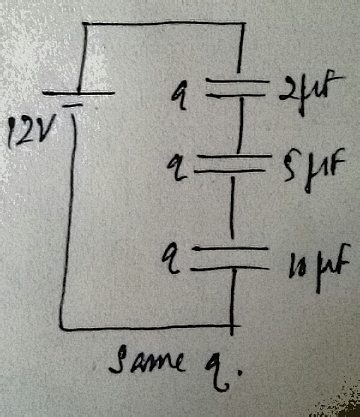 q 2μF
12V
q 5μF
q 10μF
Same q.